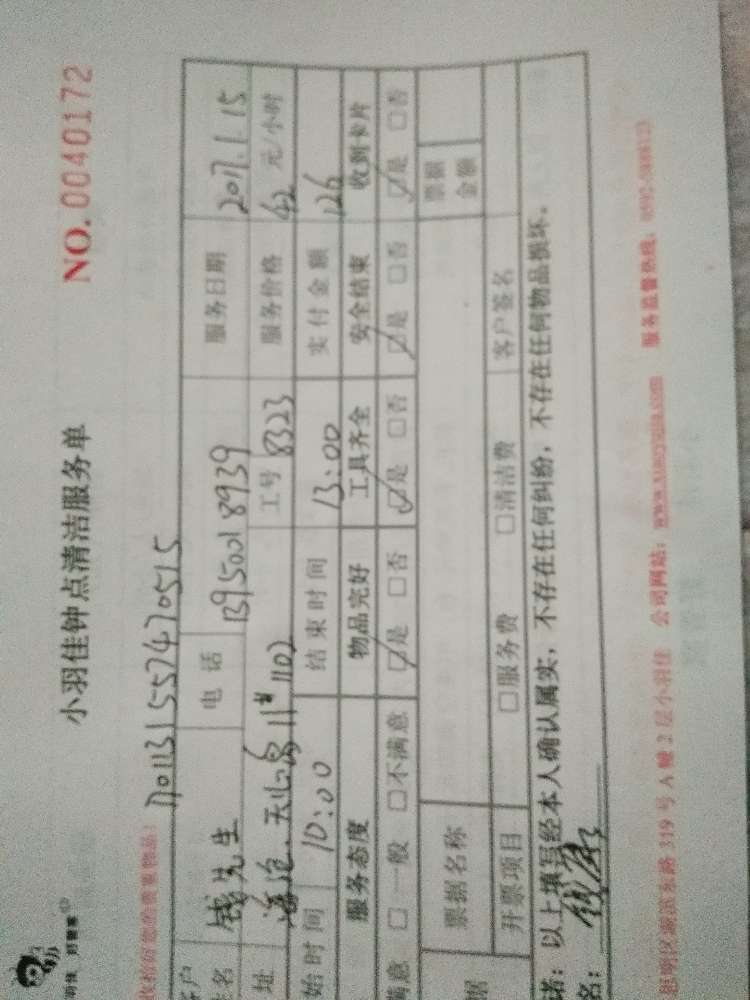 小羽佳钟点清洁服务单 NO.0040172
收拾好您的贵重物品: 1701131557470515
客户 钱先生 电话 13950018939 服务日期 2017.1.15
址 海沧.天心岛11# 1102 工号 8323 服务价格 42 元/小时
始时间 10:00 结束时间 13:00 实付金额 126
服务态度 物品完好 工具齐全 安全结束 收到卡片
满意 □一般 □不满意 ☑是 □否 ☑是 □否 ☑是 □否 ☑是 □否
据 票据名称 票据金额
开票项目 □服务费 □清洁费 客户签名
诺: 以上填写经本人确认属实,不存在任何纠纷,不存在任何物品损坏。
名:
思明区湖滨东路319号A幢2层小羽佳 公司网站: www.xiaoyujia.com 服务监督热线: